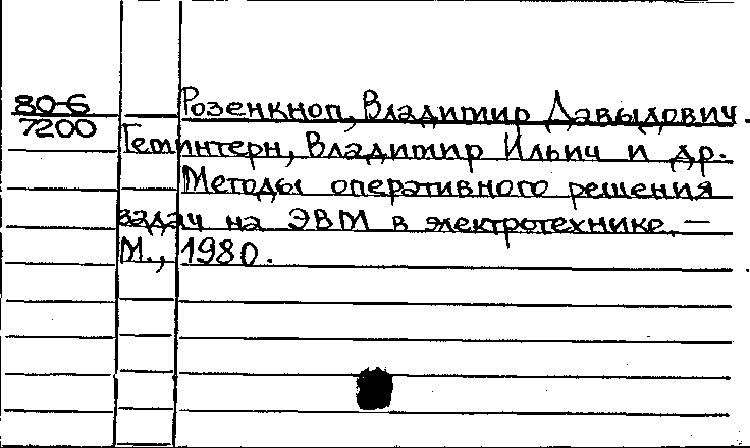 80-6
7200
Розенкноп, Владимир Давыдович.
Геминтерн, Владимир Ильич и др.
Методы оперативного решения
задач на ЭВМ в электротехнике. —
М., 1980.